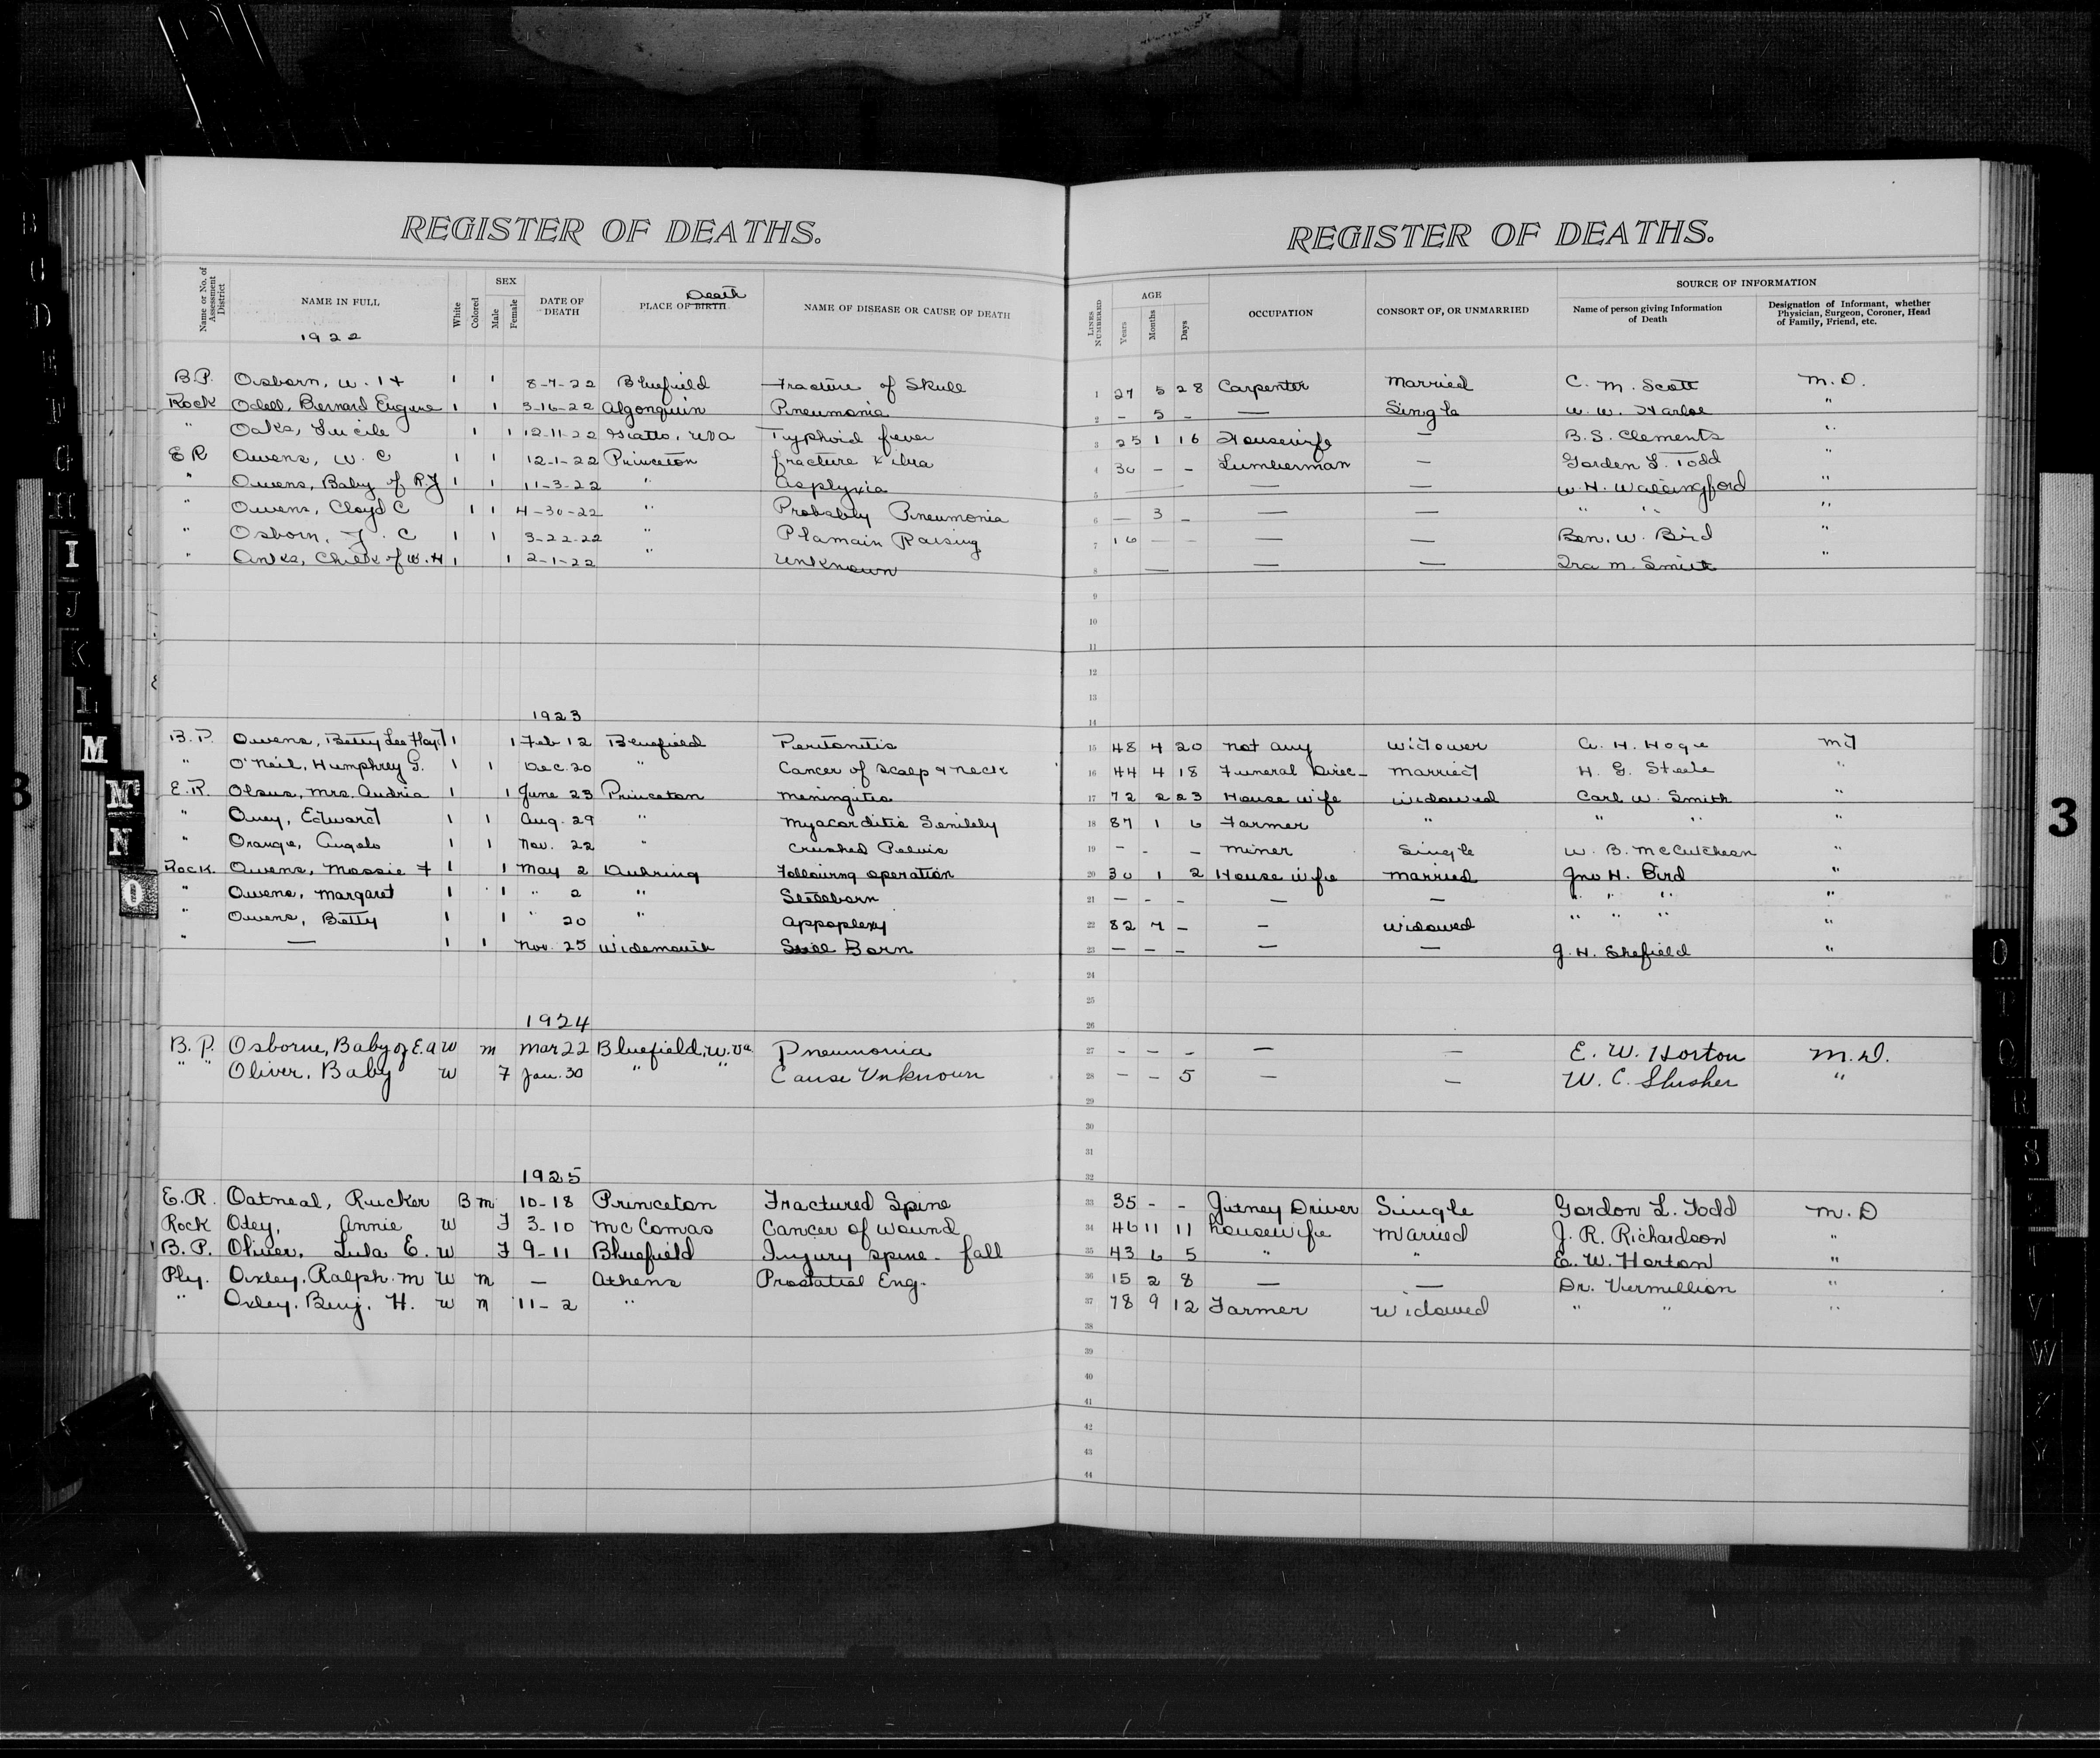 REGISTER OF DEATHS. REGISTER OF DEATHS.
Name or No. of Assessment District NAME IN FULL White Colored SEX Male Female DATE OF DEATH PLACE OF BIRTH Death NAME OF DISEASE OR CAUSE OF DEATH LINES NUMBERED AGE Years Months Days OCCUPATION CONSORT OF, OR UNMARRIED SOURCE OF INFORMATION Name of person giving Information of Death Designation of Informant, whether Physician, Surgeon, Coroner, Head of Family, Friend, etc.
1922
B.P. Osborn, W. H 1 1 8-7-22 Bluefield Fracture of Skull 1 27 5 28 Carpenter Married C. M. Scott M.D.
Rock Odell, Bernard Eugene 1 1 3-16-22 Algonquin Pneumonia 2 - 5 - — Single W. W. Harloe "
" Oaks, Lucile 1 1 12-11-22 Giatto, WVa Typhoid fever 3 25 1 16 Housewife — B. S. Clements "
E R Owens, W. C 1 1 12-1-22 Princeton fracture 4 30 - - Lumberman — Gorden L. Todd "
" Owens, Baby of R.J 1 1 11-3-22 " Asplyxia 5 — — — W. H. Wallingford "
" Owens, Cloyd C 1 1 4-30-22 " Probably Pneumonia 6 — 3 - — — " " "
" Osborn, J. C 1 1 3-22-22 " Ptamain Paising 7 16 — — — — Ben. W. Bird "
" Child of W. H 1 1 2-1-22 " Unknown 8 — — — Ira M. Smith "
9
10
11
12
13
1923 14
B.P. Owens, Betty Lee 1 1 Feb 12 Bluefield Peritonitis 15 48 4 20 not any Widower A. H. Hoge MD
" O'Neil, Humphrey G. 1 1 Dec. 20 " Cancer of Scalp & Neck 16 44 4 18 Funeral Direc- Married H. G. Steele "
E.R. Olsus, Mrs. Audria 1 1 June 23 Princeton Meningitis 17 72 2 23 House wife Widowed Carl W. Smith "
" Oney, Edward 1 1 Aug. 29 " Myacorditis Senilely 18 87 1 6 Farmer " " " "
" Orange, Angelo 1 1 Nov. 22 " Crushed Pelvis 19 - - - Miner Single W. B. McCutcheon "
Rock. Owens, Massie F 1 1 May 2 Duhring Following operation 20 30 1 2 House wife Married Jno H. Bird "
" Owens, Margaret 1 1 " 2 " Stillborn 21 - - - — — " " " "
" Owens, Betty 1 1 " 20 " Appoplexy 22 82 7 - - Widowed " " " "
" — 1 1 Nov. 25 Widemouth Still Born 23 - - - — — J. H. Shefield "
24
25
1924 26
B. P. Osborne, Baby of E.A W M Mar 22 Bluefield, W. Va Pneumonia 27 - - - — — E. W. Horton M.D.
" " Oliver, Baby W F Jan. 30 " " Cause Unknown 28 - - 5 — — W. C. Slusher "
29
30
31
1925 32
E.R. Oatneal, Rucker B M 10-18 Princeton Fractured Spine 33 35 - - Jitney Driver Single Gordon L. Todd M. D
Rock Otey, Annie W F 3-10 McComas Cancer of wound 34 46 11 11 housewife Married J. R. Richardson "
B. P. Oliver, Lula E. W F 9-11 Bluefield Injury spine - fall 35 43 6 5 " " E. W. Horton "
Ply. Oxley, Ralph. M W M — Athens Prostatial Eng. 36 15 2 8 — — Dr. Vermillion "
" Oxley, Benj. H. W M 11-2 " 37 78 9 12 Farmer Widowed " " "
38
39
40
41
42
43
44
B
C
D
E
F
G
H
I
J
K
L
M
Mc
N
O
3
3
O
P
Q
R
S
T
V
W
X
Y